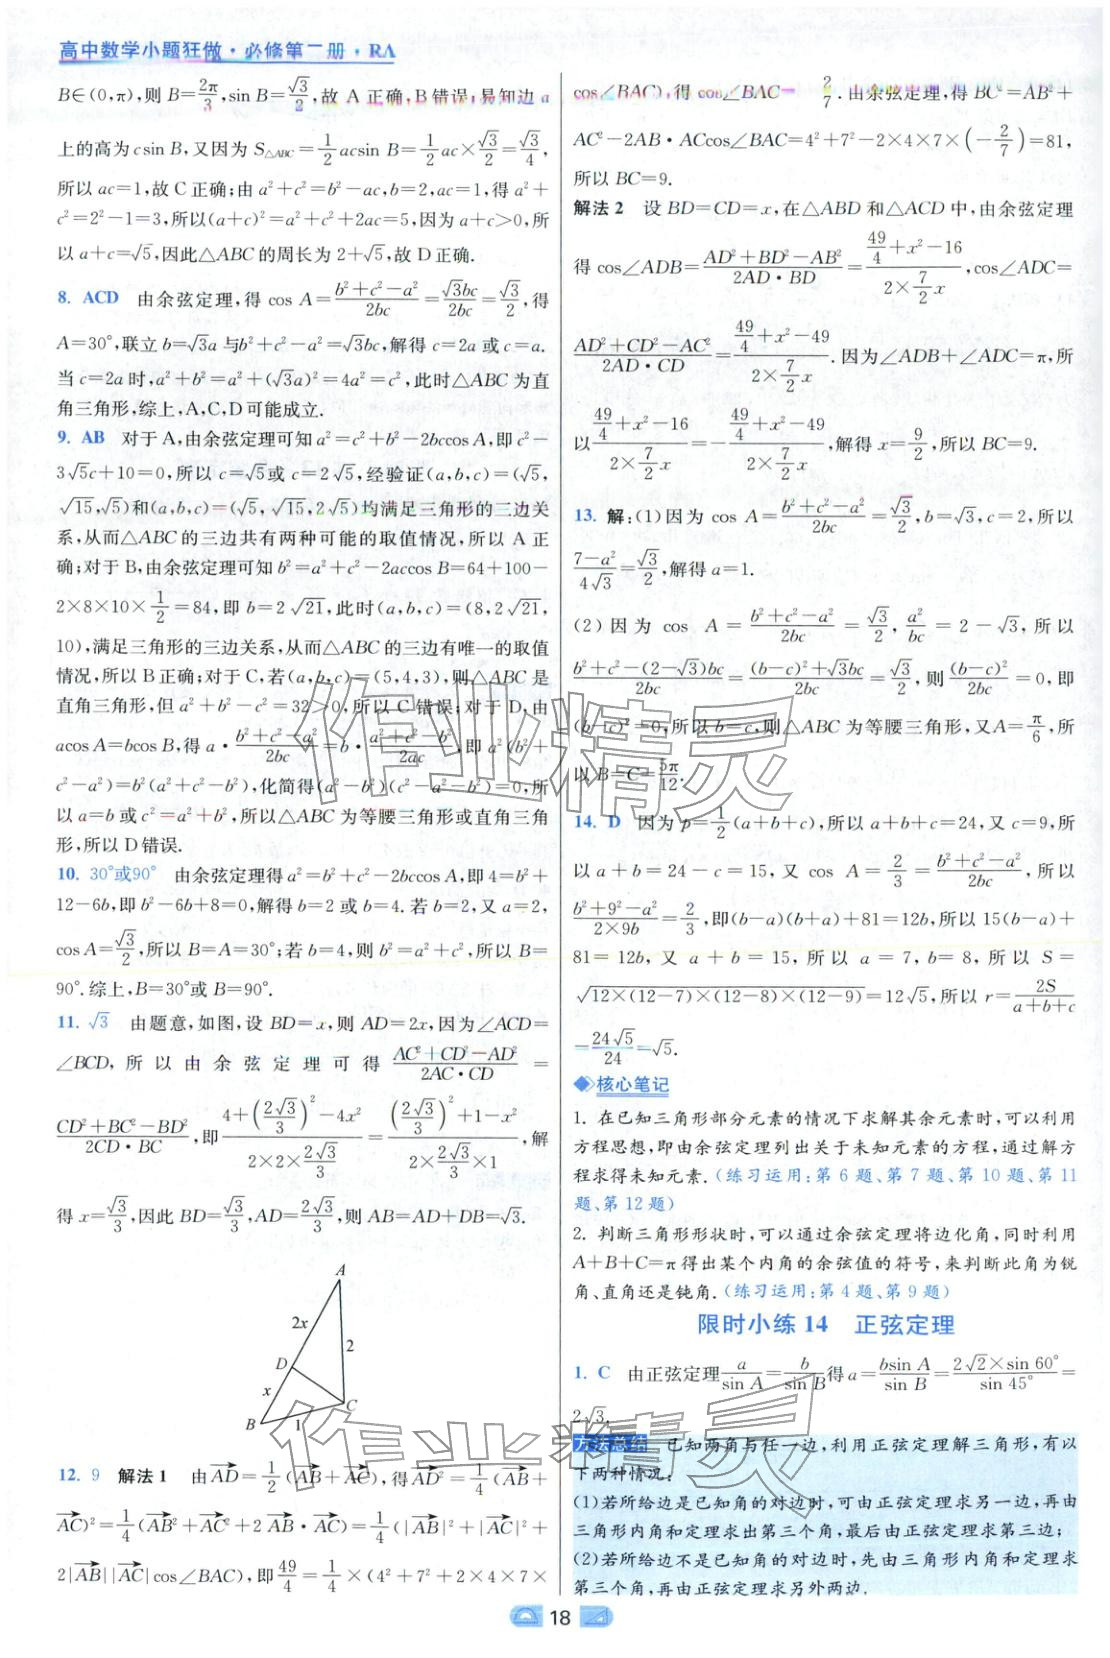 高中数学小题狂做·必修第二册·RA
B∈(0,π),则 B=2π/3,sin B=√3/2,故 A 正确,B 错误;易知边 a
上的高为 csin B,又因为 S△ABC=1/2 acsin B=1/2 ac×√3/2=√3/4,
所以 ac=1,故 C 正确;由 a²+c²=b²-ac,b=2,ac=1,得 a²+
c²=2²-1=3,所以(a+c)²=a²+c²+2ac=5,因为 a+c>0,所
以 a+c=√5,因此△ABC 的周长为 2+√5,故 D 正确.
8. ACD 由余弦定理,得 cos A=(b²+c²-a²)/2bc=√3bc/2bc=√3/2,得
A=30°,联立 b=√3a 与b²+c²-a²=√3bc,解得 c=2a 或 c=a.
当 c=2a 时,a²+b²=a²+(√3a)²=4a²=c²,此时△ABC 为直
角三角形,综上,A,C,D 可能成立.
9. AB 对于 A,由余弦定理可知 a²=c²+b²-2bccos A,即 c²-
3√5c+10=0,所以 c=√5或 c=2√5,经验证(a,b,c)=(√5,
√15,√5)和(a,b,c)=(√5,√15,2√5)均满足三角形的三边关
系,从而△ABC 的三边共有两种可能的取值情况,所以 A 正
确;对于 B,由余弦定理可知 b²=a²+c²-2accos B=64+100-
2×8×10×1/2=84,即 b=2√21,此时(a,b,c)=(8,2√21,
10),满足三角形的三边关系,从而△ABC 的三边有唯一的取值
情况,所以 B 正确;对于 C,若(a,b,c)=(5,4,3),则△ABC 是
直角三角形,但 a²+b²-c²=32>0,所以 C 错误;对于 D,由
acos A=bcos B,得 a·(b²+c²-a²)/2bc=b·(a²+c²-b²)/2ac,即 a²(b²+
c²-a²)=b²(a²+c²-b²),化简得(a²-b²)(c²-a²-b²)=0,所
以 a=b或 c²=a²+b²,所以△ABC 为等腰三角形或直角三角
形,所以 D 错误.
10. 30°或90° 由余弦定理得 a²=b²+c²-2bccos A,即 4=b²+
12-6b,即 b²-6b+8=0,解得 b=2 或 b=4. 若 b=2,又 a=2,
cos A=√3/2,所以 B=A=30°;若 b=4,则 b²=a²+c²,所以 B=
90°.综上,B=30°或 B=90°.
11. √3 由题意,如图,设 BD=x,则 AD=2x,因为∠ACD=
∠BCD,所以由余弦定理可得 (AC²+CD²-AD²)/2AC·CD=
(CD²+BC²-BD²)/2CD·BC,即(4+(2√3/3)²-4x²)/(2×2×2√3/3)=((2√3/3)²+1-x²)/(2×2√3/3×1),解
得 x=√3/3,因此 BD=√3/3,AD=2√3/3,则 AB=AD+DB=√3.
A
2x
2
D
x
C
B
1
12. 9 解法 1 由AD=1/2(AB+AC),得AD²=1/4(AB+
AC)²=1/4(AB²+AC²+2AB·AC)=1/4(|AB|²+|AC|²+
2|AB||AC|cos∠BAC),即49/4=1/4×(4²+7²+2×4×7×
cos∠BAC),得 cos∠BAC=-2/7.由余弦定理,得 BC²=AB²+
AC²-2AB·ACcos∠BAC=4²+7²-2×4×7×(-2/7)=81,
所以 BC=9.
解法 2 设 BD=CD=x,在△ABD 和△ACD 中,由余弦定理
得 cos∠ADB=(AD²+BD²-AB²)/2AD·BD=(49/4+x²-16)/(2×7/2 x),cos∠ADC=
(AD²+CD²-AC²)/2AD·CD=(49/4+x²-49)/(2×7/2 x).因为∠ADB+∠ADC=π,所
以(49/4+x²-16)/(2×7/2 x)=-(49/4+x²-49)/(2×7/2 x),解得 x=9/2,所以 BC=9.
13. 解:(1)因为 cos A=(b²+c²-a²)/2bc=√3/2,b=√3,c=2,所以
(7-a²)/4√3=√3/2,解得 a=1.
(2)因为 cos A=(b²+c²-a²)/2bc=√3/2,a²/bc=2-√3,所以
(b²+c²-(2-√3)bc)/2bc=((b-c)²+√3bc)/2bc=√3/2,则(b-c)²/2bc=0,即
(b-c)²=0,所以 b=c,则△ABC 为等腰三角形,又A=π/6,所
以 B=C=5π/12.
14. D 因为 p=1/2(a+b+c),所以 a+b+c=24,又 c=9,所
以 a+b=24-c=15,又 cos A=2/3=(b²+c²-a²)/2bc,所以
(b²+9²-a²)/(2×9b)=2/3,即(b-a)(b+a)+81=12b,所以 15(b-a)+
81=12b,又 a+b=15,所以 a=7,b=8,所以 S=
√12×(12-7)×(12-8)×(12-9)=12√5,所以 r=2S/(a+b+c)
=24√5/24=√5.
核心笔记
1. 在已知三角形部分元素的情况下求解其余元素时,可以利用
方程思想,即由余弦定理列出关于未知元素的方程,通过解方
程求得未知元素.(练习运用:第 6 题、第 7 题、第 10 题、第 11
题、第 12 题)
2. 判断三角形形状时,可以通过余弦定理将边化角,同时利用
A+B+C=π得出某个内角的余弦值的符号,来判断此角为锐
角、直角还是钝角.(练习运用:第 4 题、第 9 题)
限时小练 14 正弦定理
1. C 由正弦定理a/sin A=b/sin B得 a=bsin A/sin B=2√2×sin 60°/sin 45°=
2√3.
方法总结 已知两角与任一边,利用正弦定理解三角形,有以
下两种情况:
(1)若所给边是已知角的对边时,可由正弦定理求另一边,再由
三角形内角和定理求出第三个角,最后由正弦定理求第三边;
(2)若所给边不是已知角的对边时,先由三角形内角和定理求
第三个角,再由正弦定理求另外两边.
18
作业精灵
作业精灵